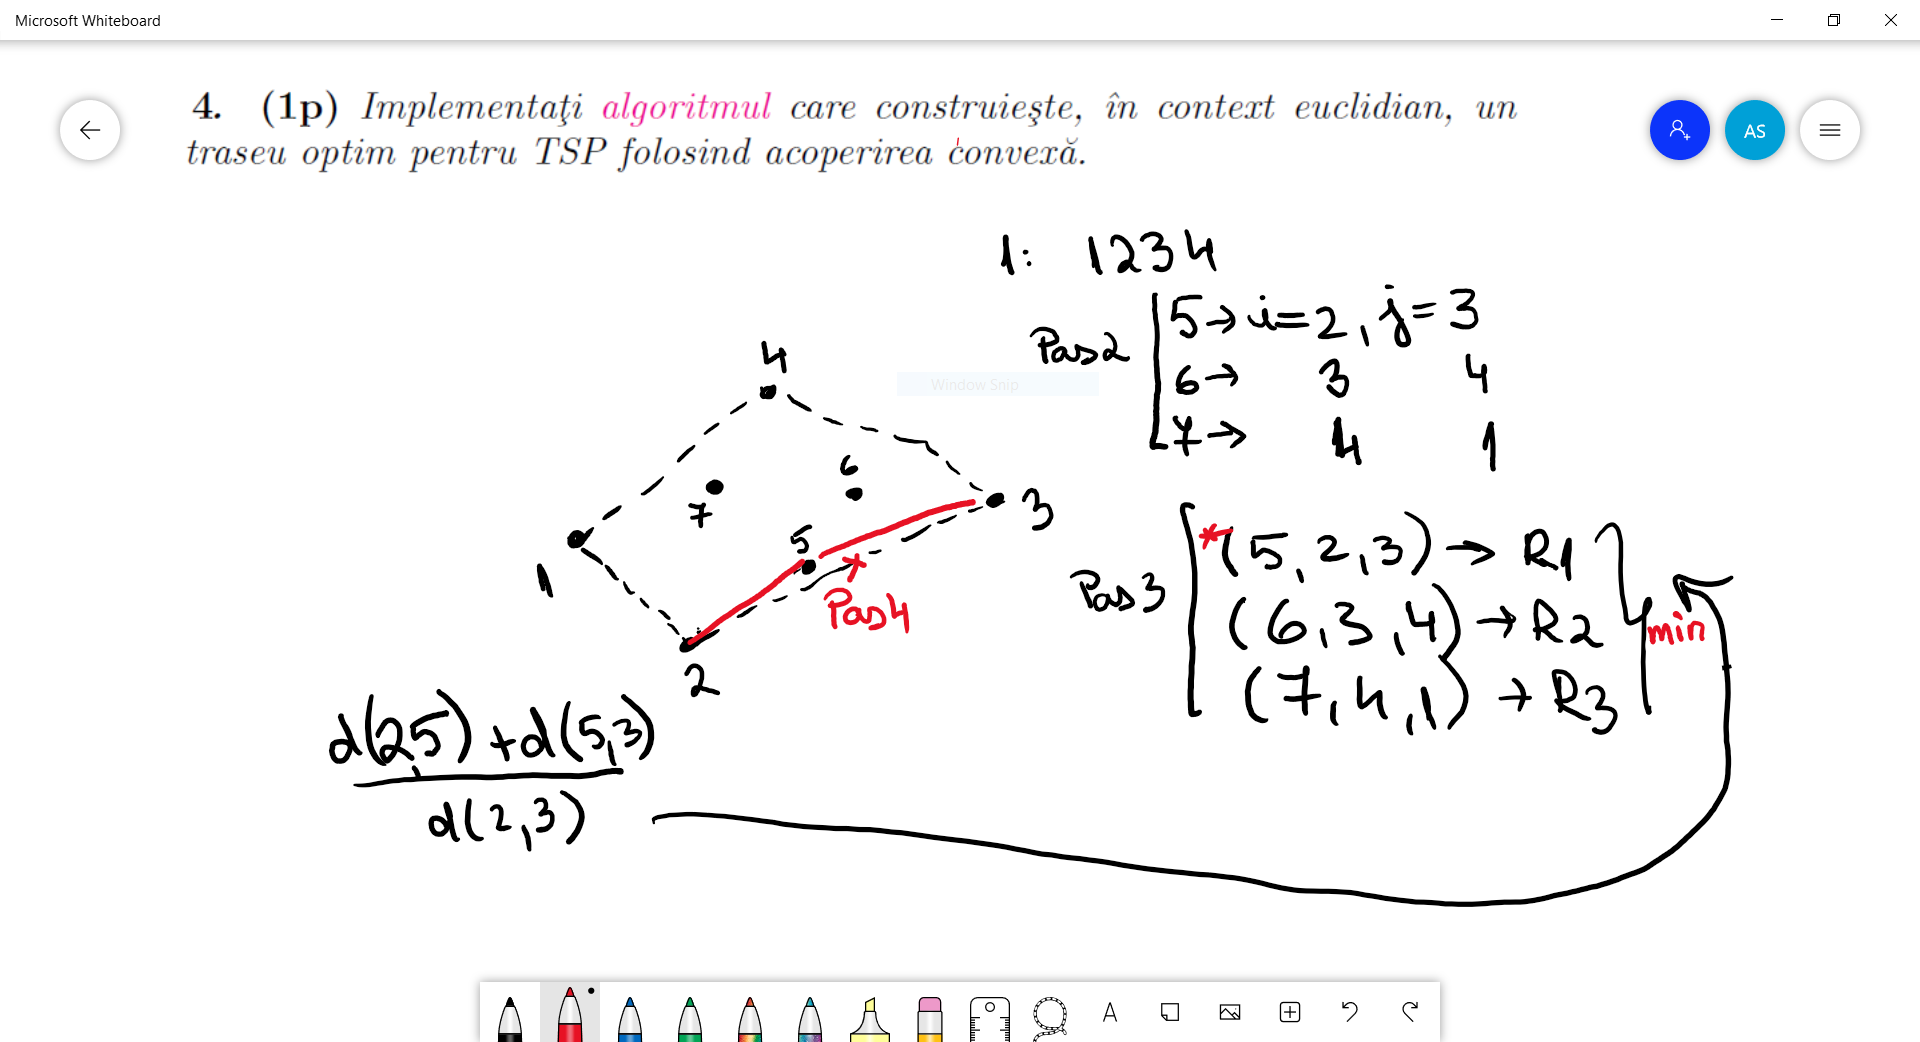 Microsoft Whiteboard
4. (1p) Implementaţi algoritmul care construieşte, în context euclidian, un
traseu optim pentru TSP folosind acoperirea convexă.
AS
1: 1234
Pas2
5 → i=2, j=3
6 → 3 4
7 → 4 1
Window Snip
4
6
7
5
3
1
2
Pas4
Pas3
*(5,2,3) → R1
(6,3,4) → R2
(7,4,1) → R3
min
d(2,5) + d(5,3)
d(2,3)
A